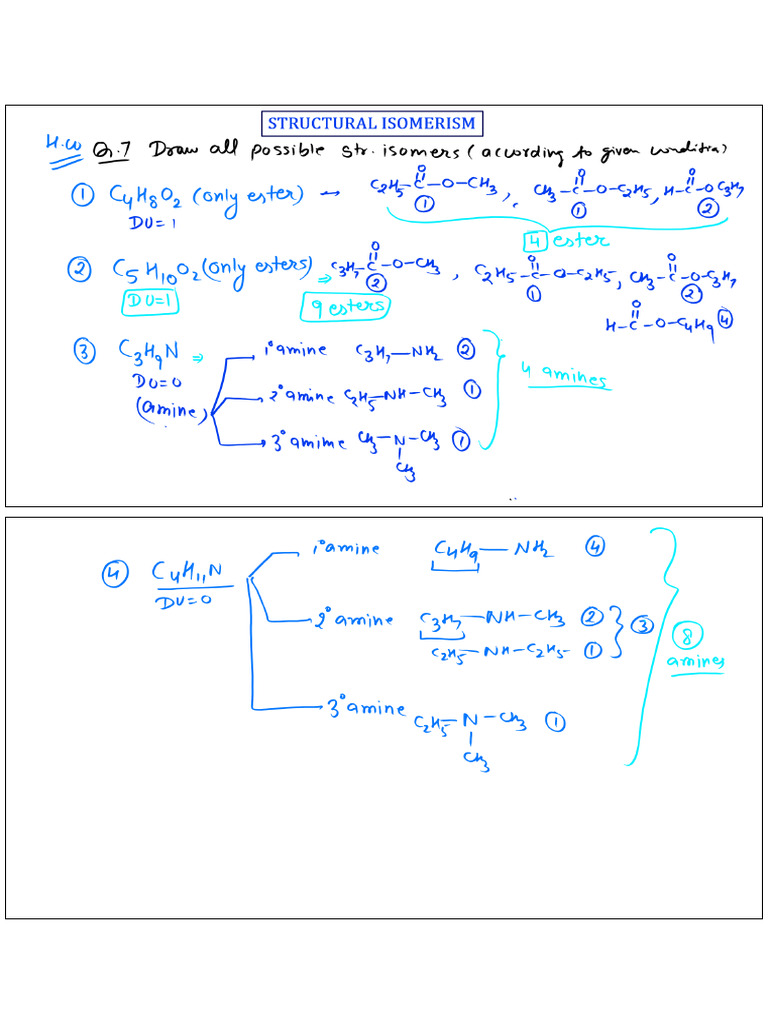 STRUCTURAL ISOMERISM
H.W Qn.7 Draw all possible str. isomers (according to given condition)
① C4H8O2 (only ester) → C2H5-C(=O)-O-CH3 ①, CH3-C(=O)-O-C2H5 ①, H-C(=O)-O-C3H7 ②
DU=1
4 ester
② C5H10O2 (only esters) ⇒ C3H7-C(=O)-O-CH3 ②, C2H5-C(=O)-O-C2H5 ①, CH3-C(=O)-O-C3H7 ②
DU=1
9 esters
H-C(=O)-O-C4H9 ④
③ C3H9N ⇒ 1° amine C3H7-NH2 ②
DU=0
(amine)
2° amine C2H5-NH-CH3 ①
4 amines
3° amime CH3-N-CH3 ①
CH3
④ C4H11N 1° amine C4H9-NH2 ④
DU=0
2° amine C3H7-NH-CH3 ② ③
C2H5-NH-C2H5- ①
⑧ amines
3° amine C2H5-N-CH3 ①
CH3